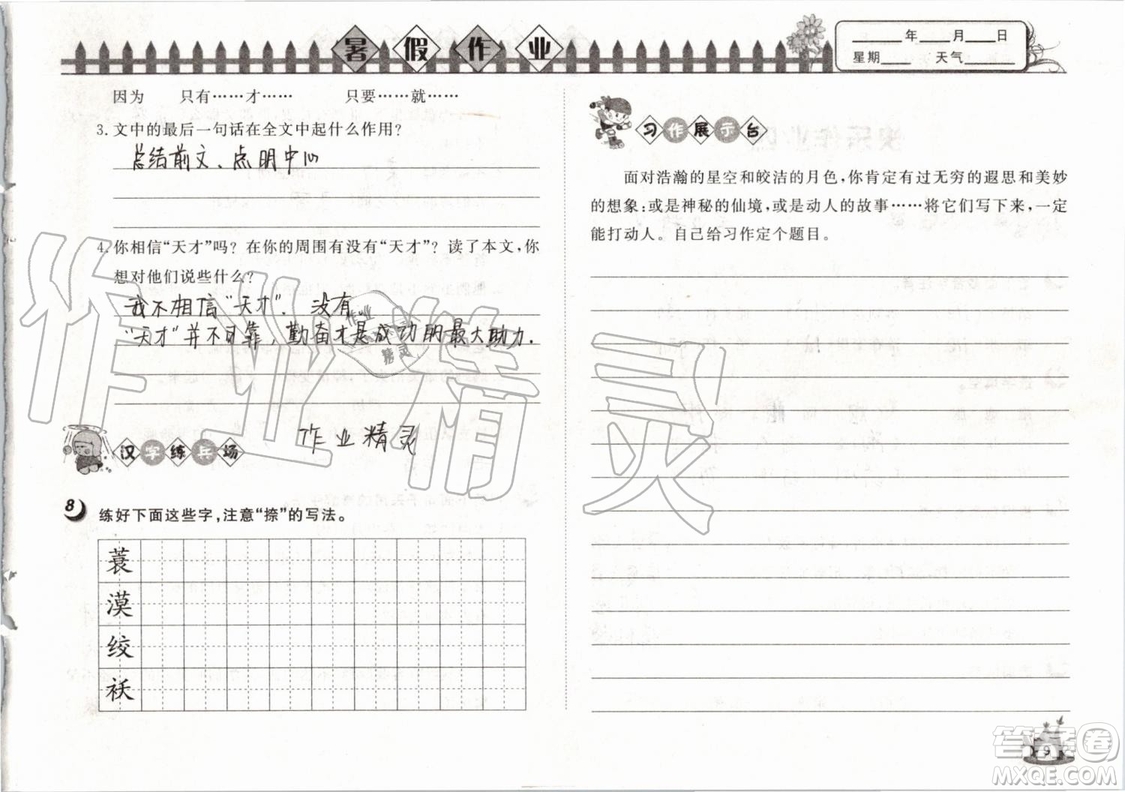 暑假作业
____年____月____日
星期____ 天气____
因为 只有……才…… 只要……就……
3. 文中的最后一句话在全文中起什么作用?
总结前文、点明中心
4. 你相信“天才”吗? 在你的周围有没有“天才”? 读了本文, 你
想对他们说些什么?
我不相信“天才”. 没有
“天才”并不可靠, 勤奋才是成功的最大助力.
作业精灵
汉字练兵场
作业精灵
8 练好下面这些字, 注意“捺”的写法。
蓑
漠
绞
袄
习作展示台
面对浩瀚的星空和皎洁的月色, 你肯定有过无穷的遐思和美妙
的想象: 或是神秘的仙境, 或是动人的故事……将它们写下来, 一定
能打动人。自己给习作定个题目。
作业精灵
9
答案卷
MXQE.COM